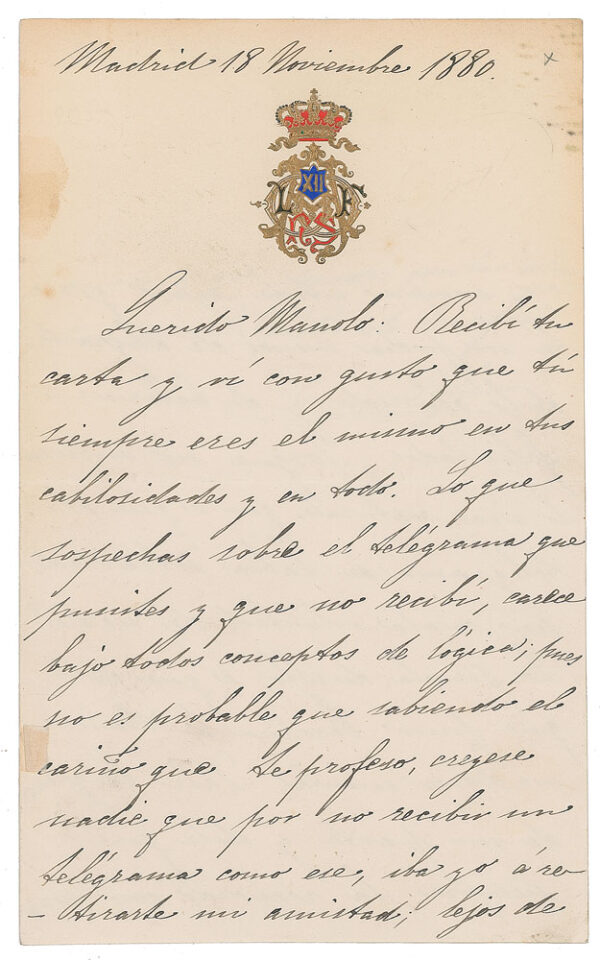 Madrid 18 Noviembre 1880.
XII
L F
Querido Manolo: Recibí tu
carta y ví con gusto que tú
siempre eres el mismo en tus
cabilosidades y en todo. Lo que
sospechas sobre el telégrama que
pusistes y que no recibí, carece
bajo todos conceptos de lógica; pues
no es probable que sabiendo el
cariño que te profeso, creyese
nadie que por no recibir un
telégrama como ese, iba yo á re-
- tirarte mi amistad; lejos de